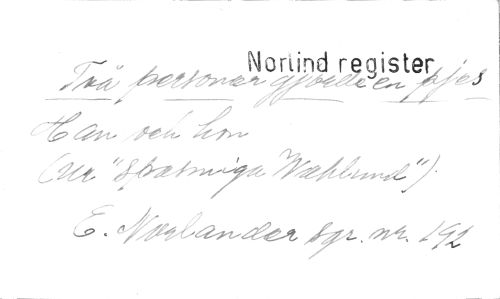 Norlind register
Två personer gjorde en pjes
Han och hon
(Ur "Spasmiga Wahlund").
E. Norlander sgr. nr. 192